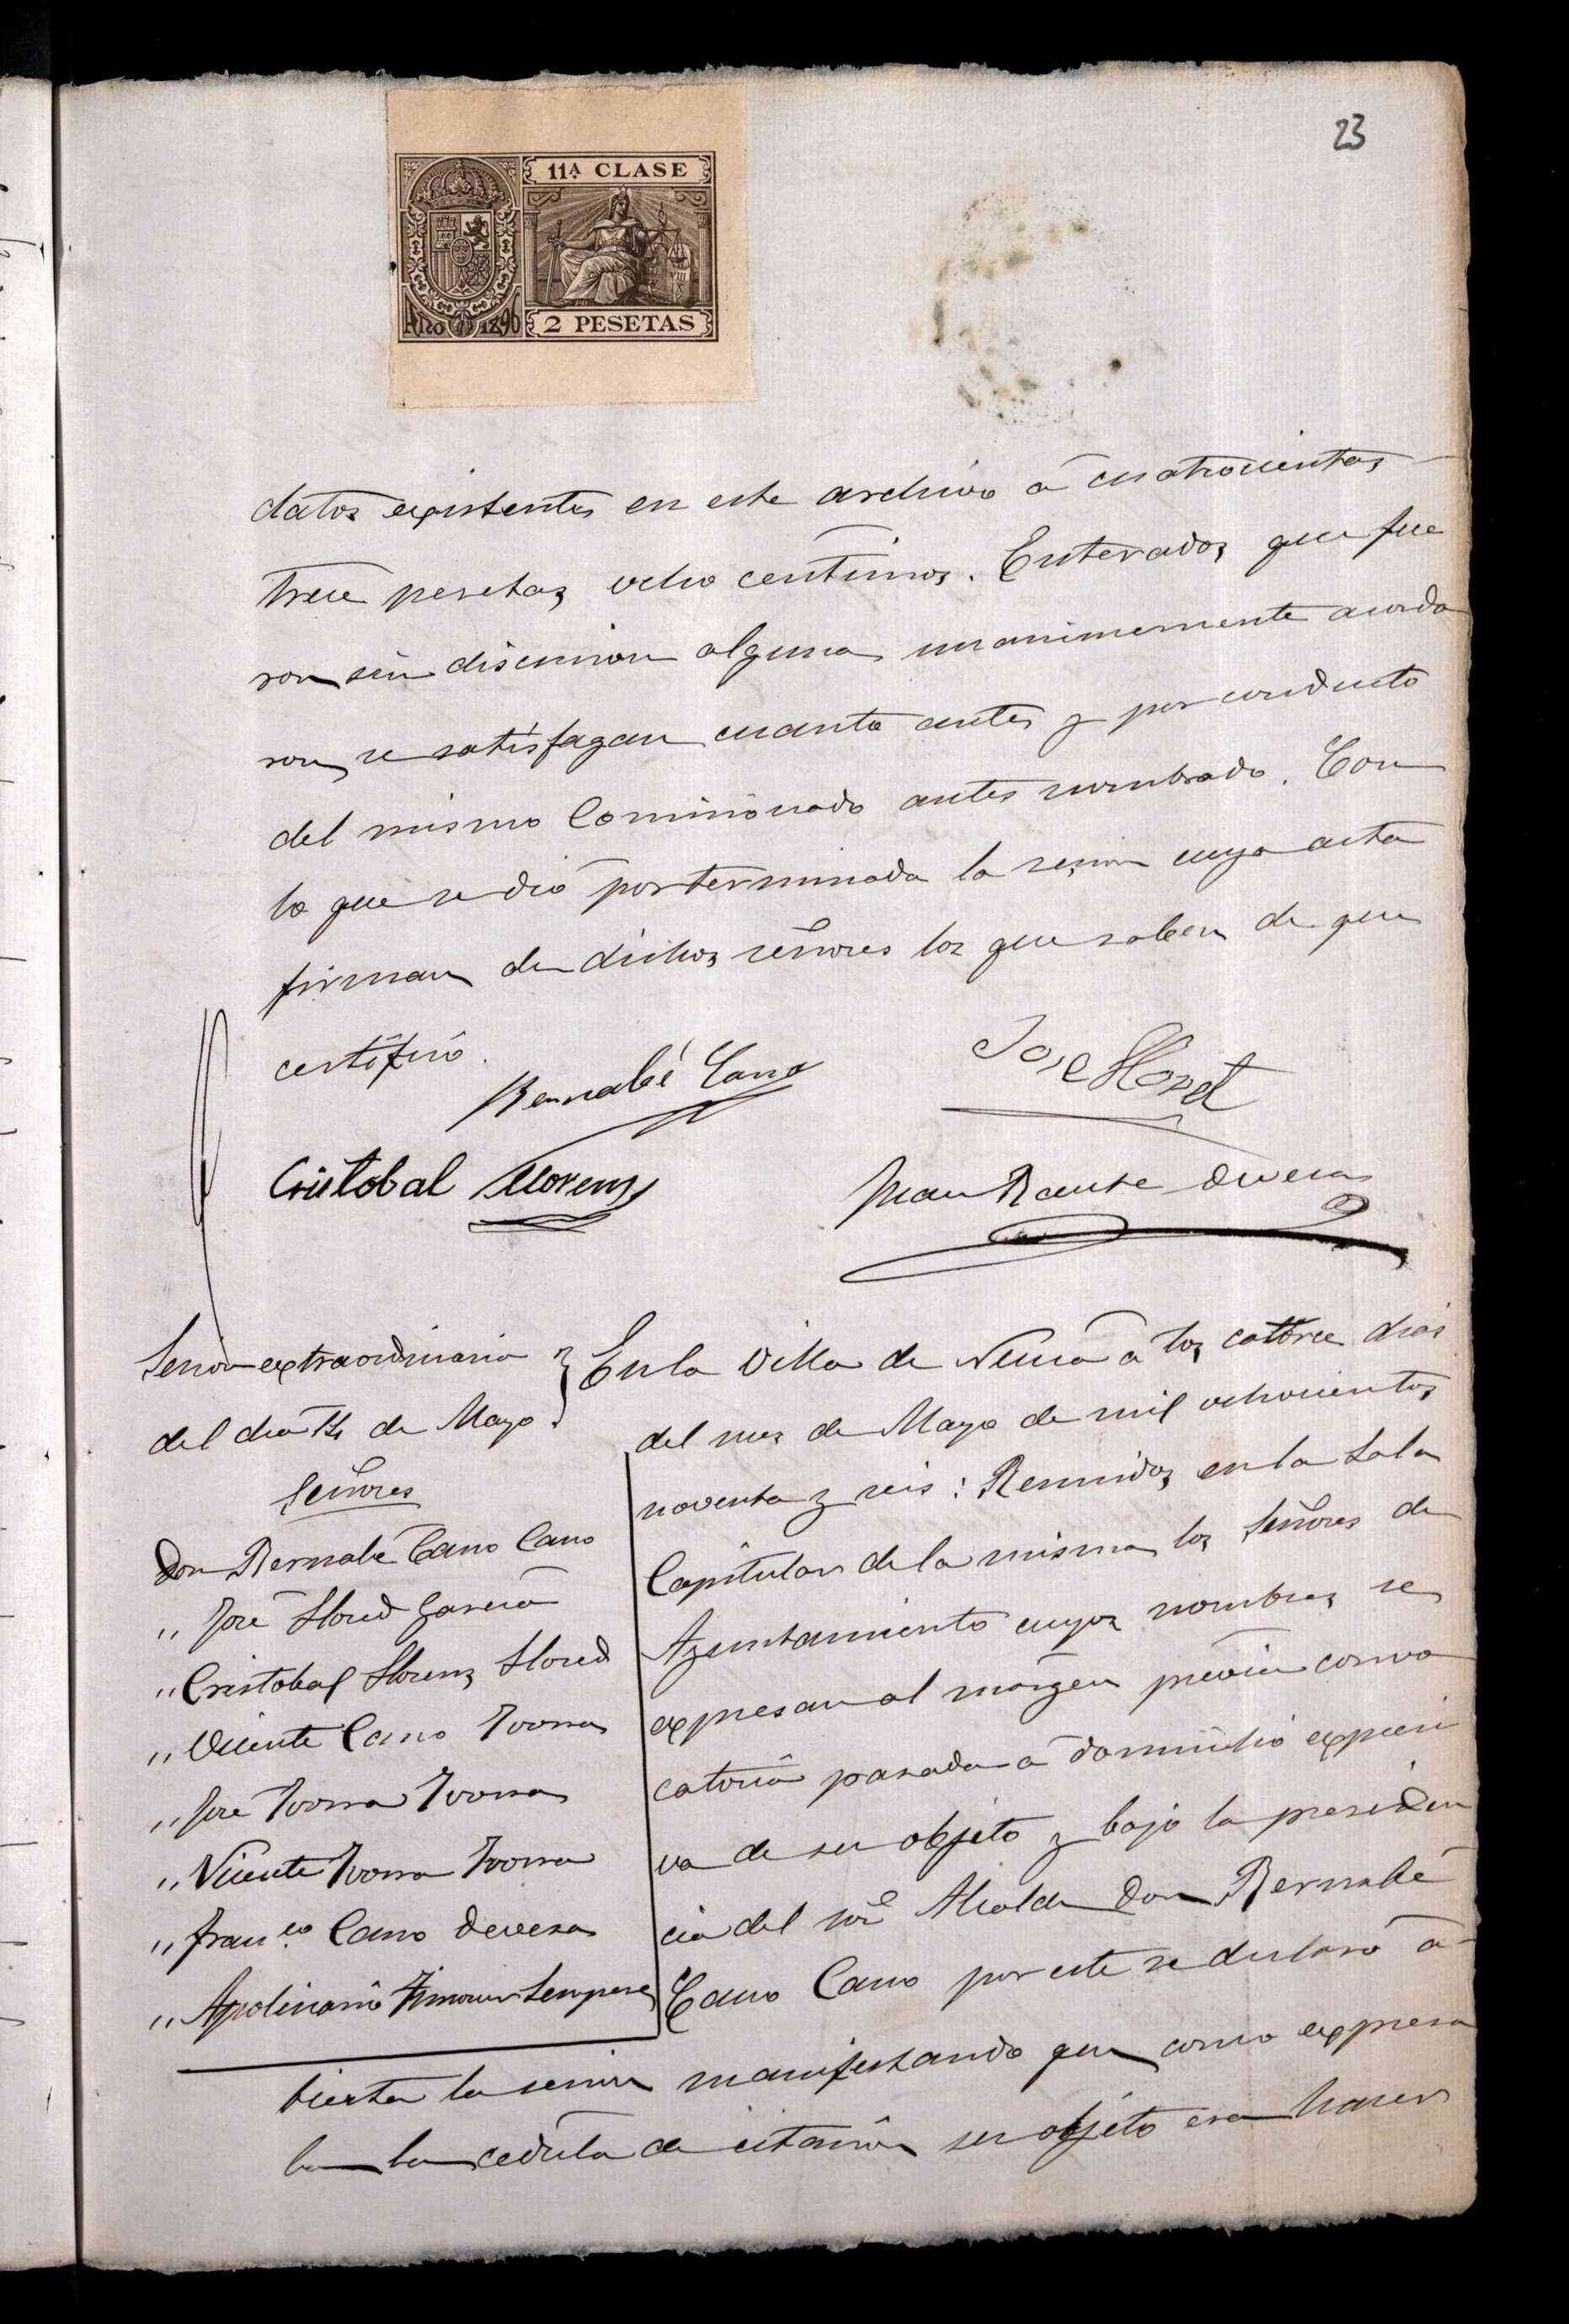 23
11ª CLASE
Año 1896
2 PESETAS
datos existentes en este archivo á cuatrocientas
trece pesetas ocho centimos. Enterados que fue
ron sin discusion alguna unanimemente acorda
ron se satisfagan cuanto antes y por conducto
del mismo Comisionado antes nombrado. Con
lo que se dió por terminada la sesion cuya acta
firman de dichos señores los que saben de que
certifico.
Bernabé Cano
José Llored
Cristobal Llorens
Juan Bause Devesa
Sesion extraordinaria
del dia 14 de Mayo.
Señores
Don Bernabé Cano Cano
" José Llored Garcia
" Cristobal Llorens Llored
" Vicente Cano Ivorra
" José Ivorra Ivorra
" Vicente Ivorra Ivorra
" Fran.co Cano Devesa
" Apolinario Sempere
En la Villa de Nucia á los catorce dias
del mes de Mayo de mil ochocientos
noventa y seis: Reunidos en la Sala
Capitular de la misma los Señores de
Ayuntamiento cuyos nombres se
expresan al márgen prévia convo
catoria pasada á domicilio expresi
va de su objeto y bajo la presiden
cia del Sor Alcalde Don Bernabé
Cano Cano por este se declaró á
bierta la sesion manifestando que como expresa
ba la cedula de citacion su objeto era hacer